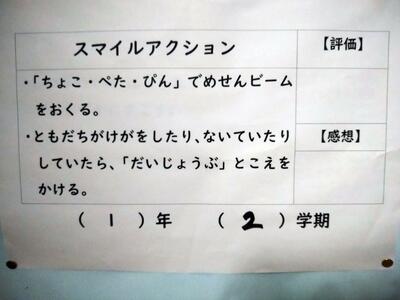 スマイルアクション
【評価】
・「ちょこ・ぺた・ぴん」でめせんビーム
をおくる。
・ともだちがけがをしたり、ないていたり
していたら、「だいじょうぶ」とこえを
かける。
【感想】
（ 1 ）年 （ 2 ）学期